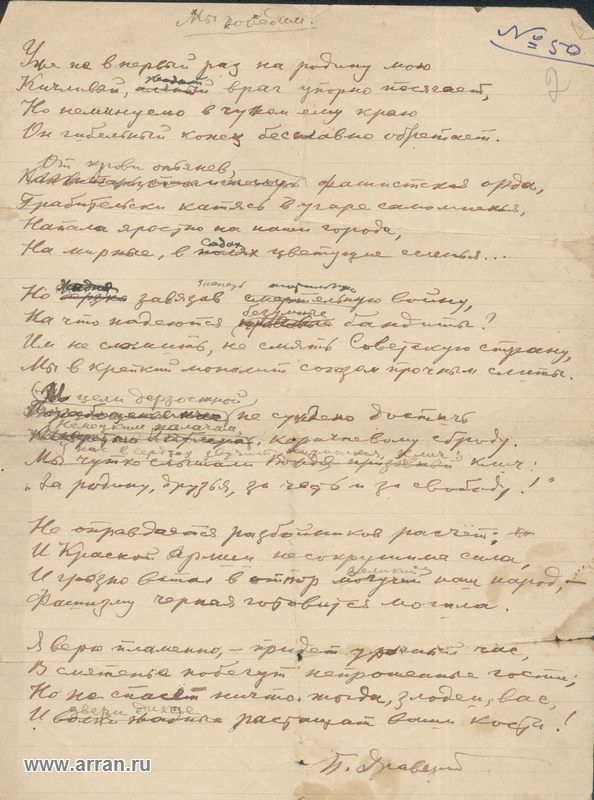 Мы победим.
№ 50
7
Уже не в первый раз на родину мою
жадный
Кичливый, враг упорно посягает,
Но неминуемо в чужом ему краю
Он гибельный конец бесславно обретает.
От крови опьянев,
фашистская орда,
Грабительски катясь в угаре самомненья,
Напала яростно на наши города,
садах
На мирные, в полях цветущие селенья...
Но завязав смертельную войну,
безумные
На что надеются бандиты?
Им не сломить, не смять Советскую страну,
Мы в крепкий монолит союзом прочным слиты.
И цели дерзостной
не суждено достичь
Немецким палачам,
коричневому сброду.
У нас в сердцах звучит клич:
Мы чутко слышали Вождя призывный клич:
„За родину, друзья, за честь и за свободу!"
Не оправдается разбойников расчёт,
И Красной Армии несокрушима сила,
великий
И грозно встал в отпор могучий наш народ, –
Фашизму черная готовится могила.
Я верю пламенно, – придет урочный час,
В смятенье побегут непрошенные гости;
Но не спасёт ничто тогда, злодеи, вас,
звери дикие
И волки жадные растащат ваши кости!
П. Травецкий
www.arran.ru